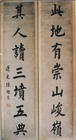 此地有崇山峻嶺
其人讀三墳五典